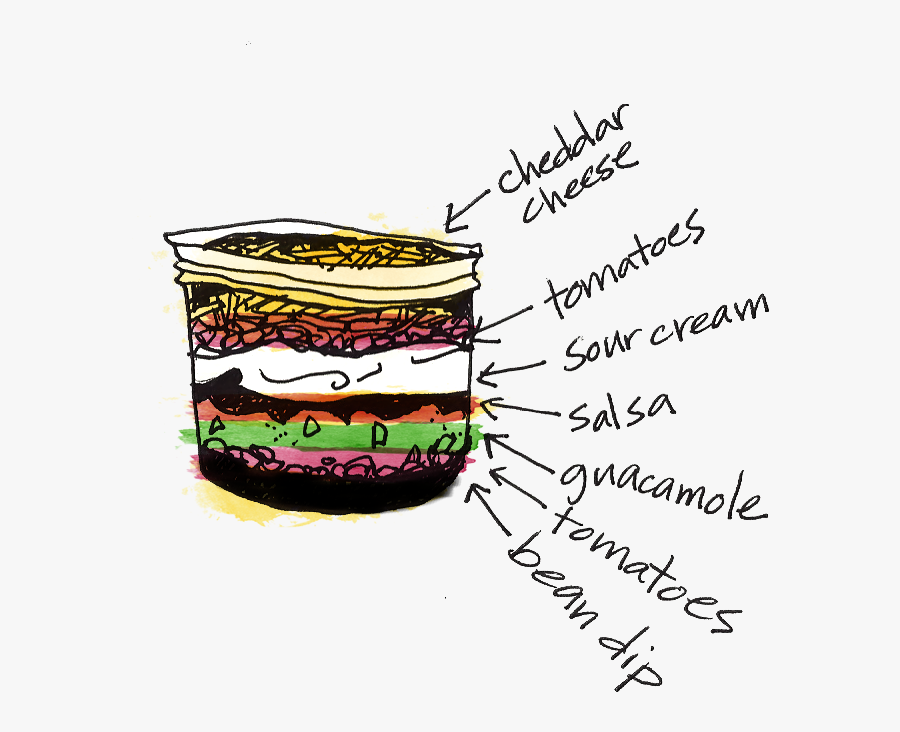 cheddar
cheese
tomatoes
sour cream
salsa
guacamole
tomatoes
bean dip